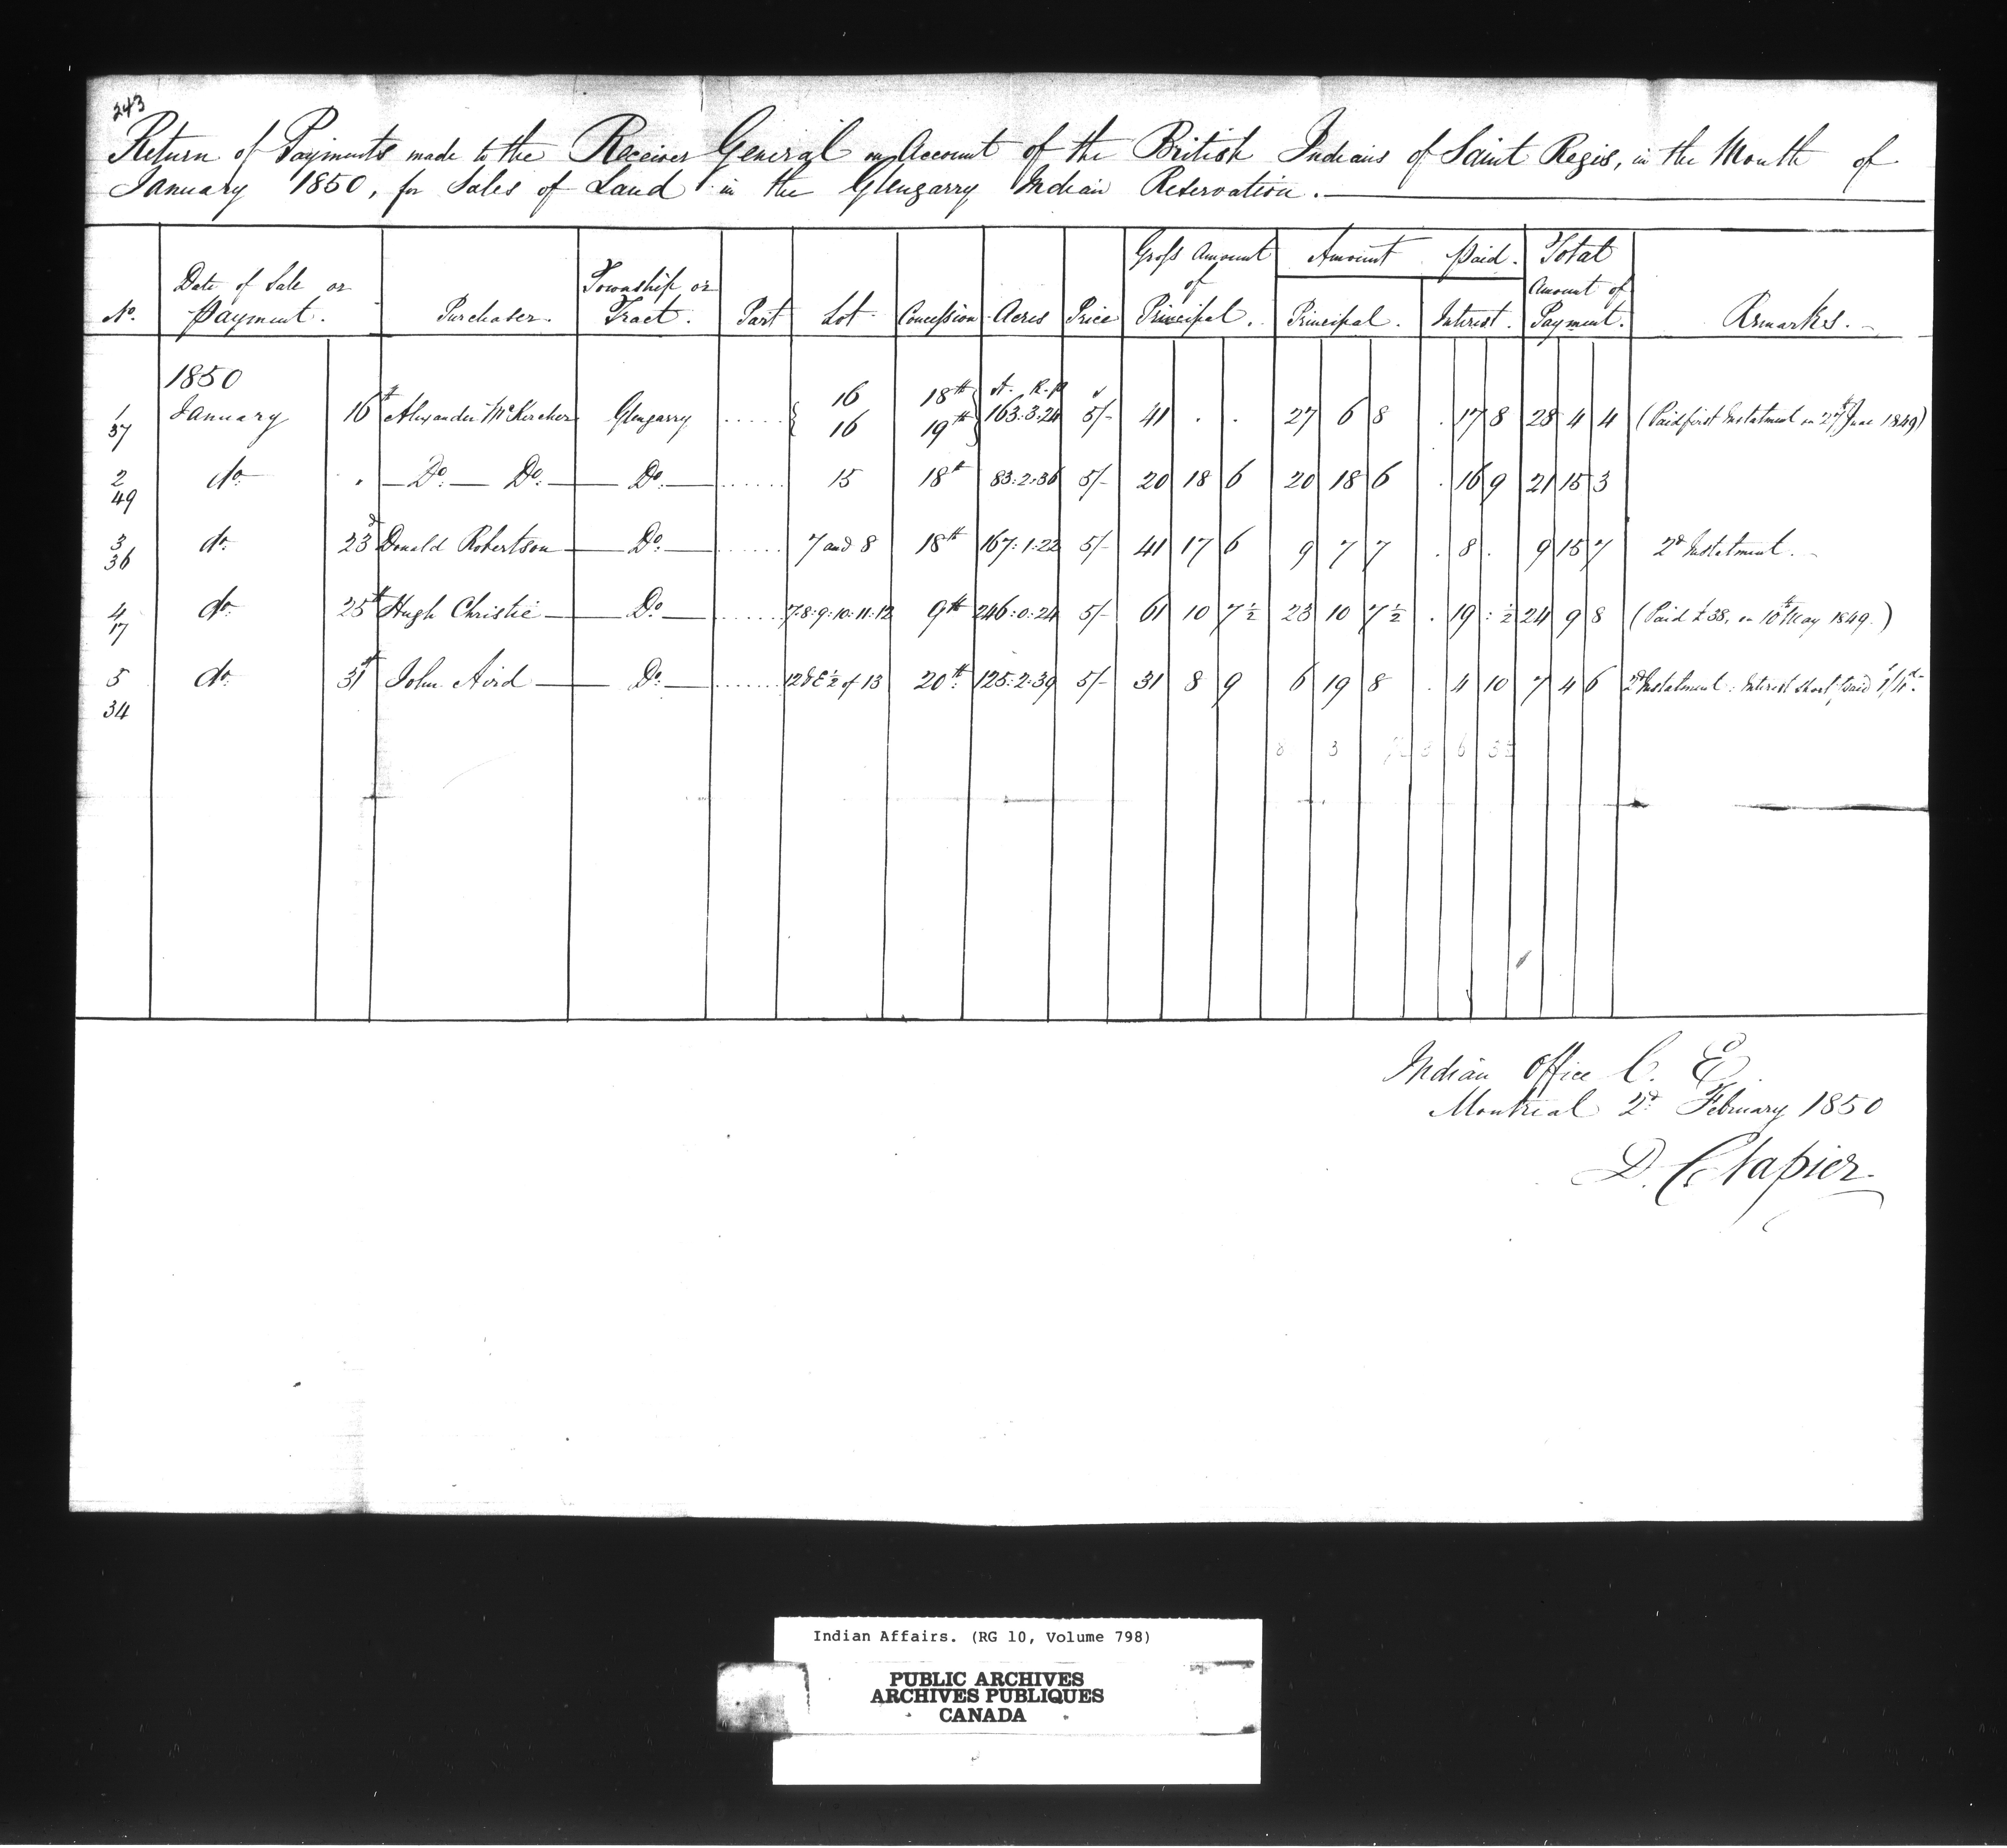 243
Return of Payments made to the Receiver General on Account of the British Indians of Saint Regis, in the Month of
January 1850, for Sales of Land in the Glengarry Indian Reservation.
No. | Date of Sale or Payment. | Purchaser. | Township or Tract. | Part | Lot | Concession | Acres | Price | Gross Amount of Principal. | Amount Paid. Principal. | Interest. | Total Amount of Payment. | Remarks.
1850
A. R. P
1/57 | January 16th | Alexander McKercher | Glengarry | ...... | { 16 16 | 18th 19th } | 163:3:24 | 5/- | 41 . . | 27 6 8 | . 17 8 | 28 4 4 | (Paid first Instalment on 27th June 1849)
2/49 | do. " | Do. Do. | Do. | ...... | 15 | 18th | 83:2:36 | 5/- | 20 18 6 | 20 18 6 | . 16 9 | 21 15 3
3/36 | do. 23d | Donald Robertson | Do. | ...... | 7 and 8 | 18th | 167:1:22 | 5/- | 41 17 6 | 9 7 7 | . 8 . | 9 15 7 | 2d Instalment.
4/17 | do. 25th | Hugh Christie | Do. | ...... | 7:8:9:10:11:12 | 9th | 246:0:24 | 5/- | 61 10 7½ | 23 10 7½ | . 19 : ½ | 24 9 8 | (Paid £38, on 10th May 1849.)
5/34 | do. 31st | John Aird | Do. | ...... | 12 & E½ of 13 | 20th | 125:2:39 | 5/- | 31 8 9 | 6 19 8 | . 4 10 | 7 4 6 | 2d Instalment: Interest short paid
Indian Office C. E.
Montreal 2d February 1850
D. C. Napier
Indian Affairs. (RG 10, Volume 798)
PUBLIC ARCHIVES
ARCHIVES PUBLIQUES
CANADA